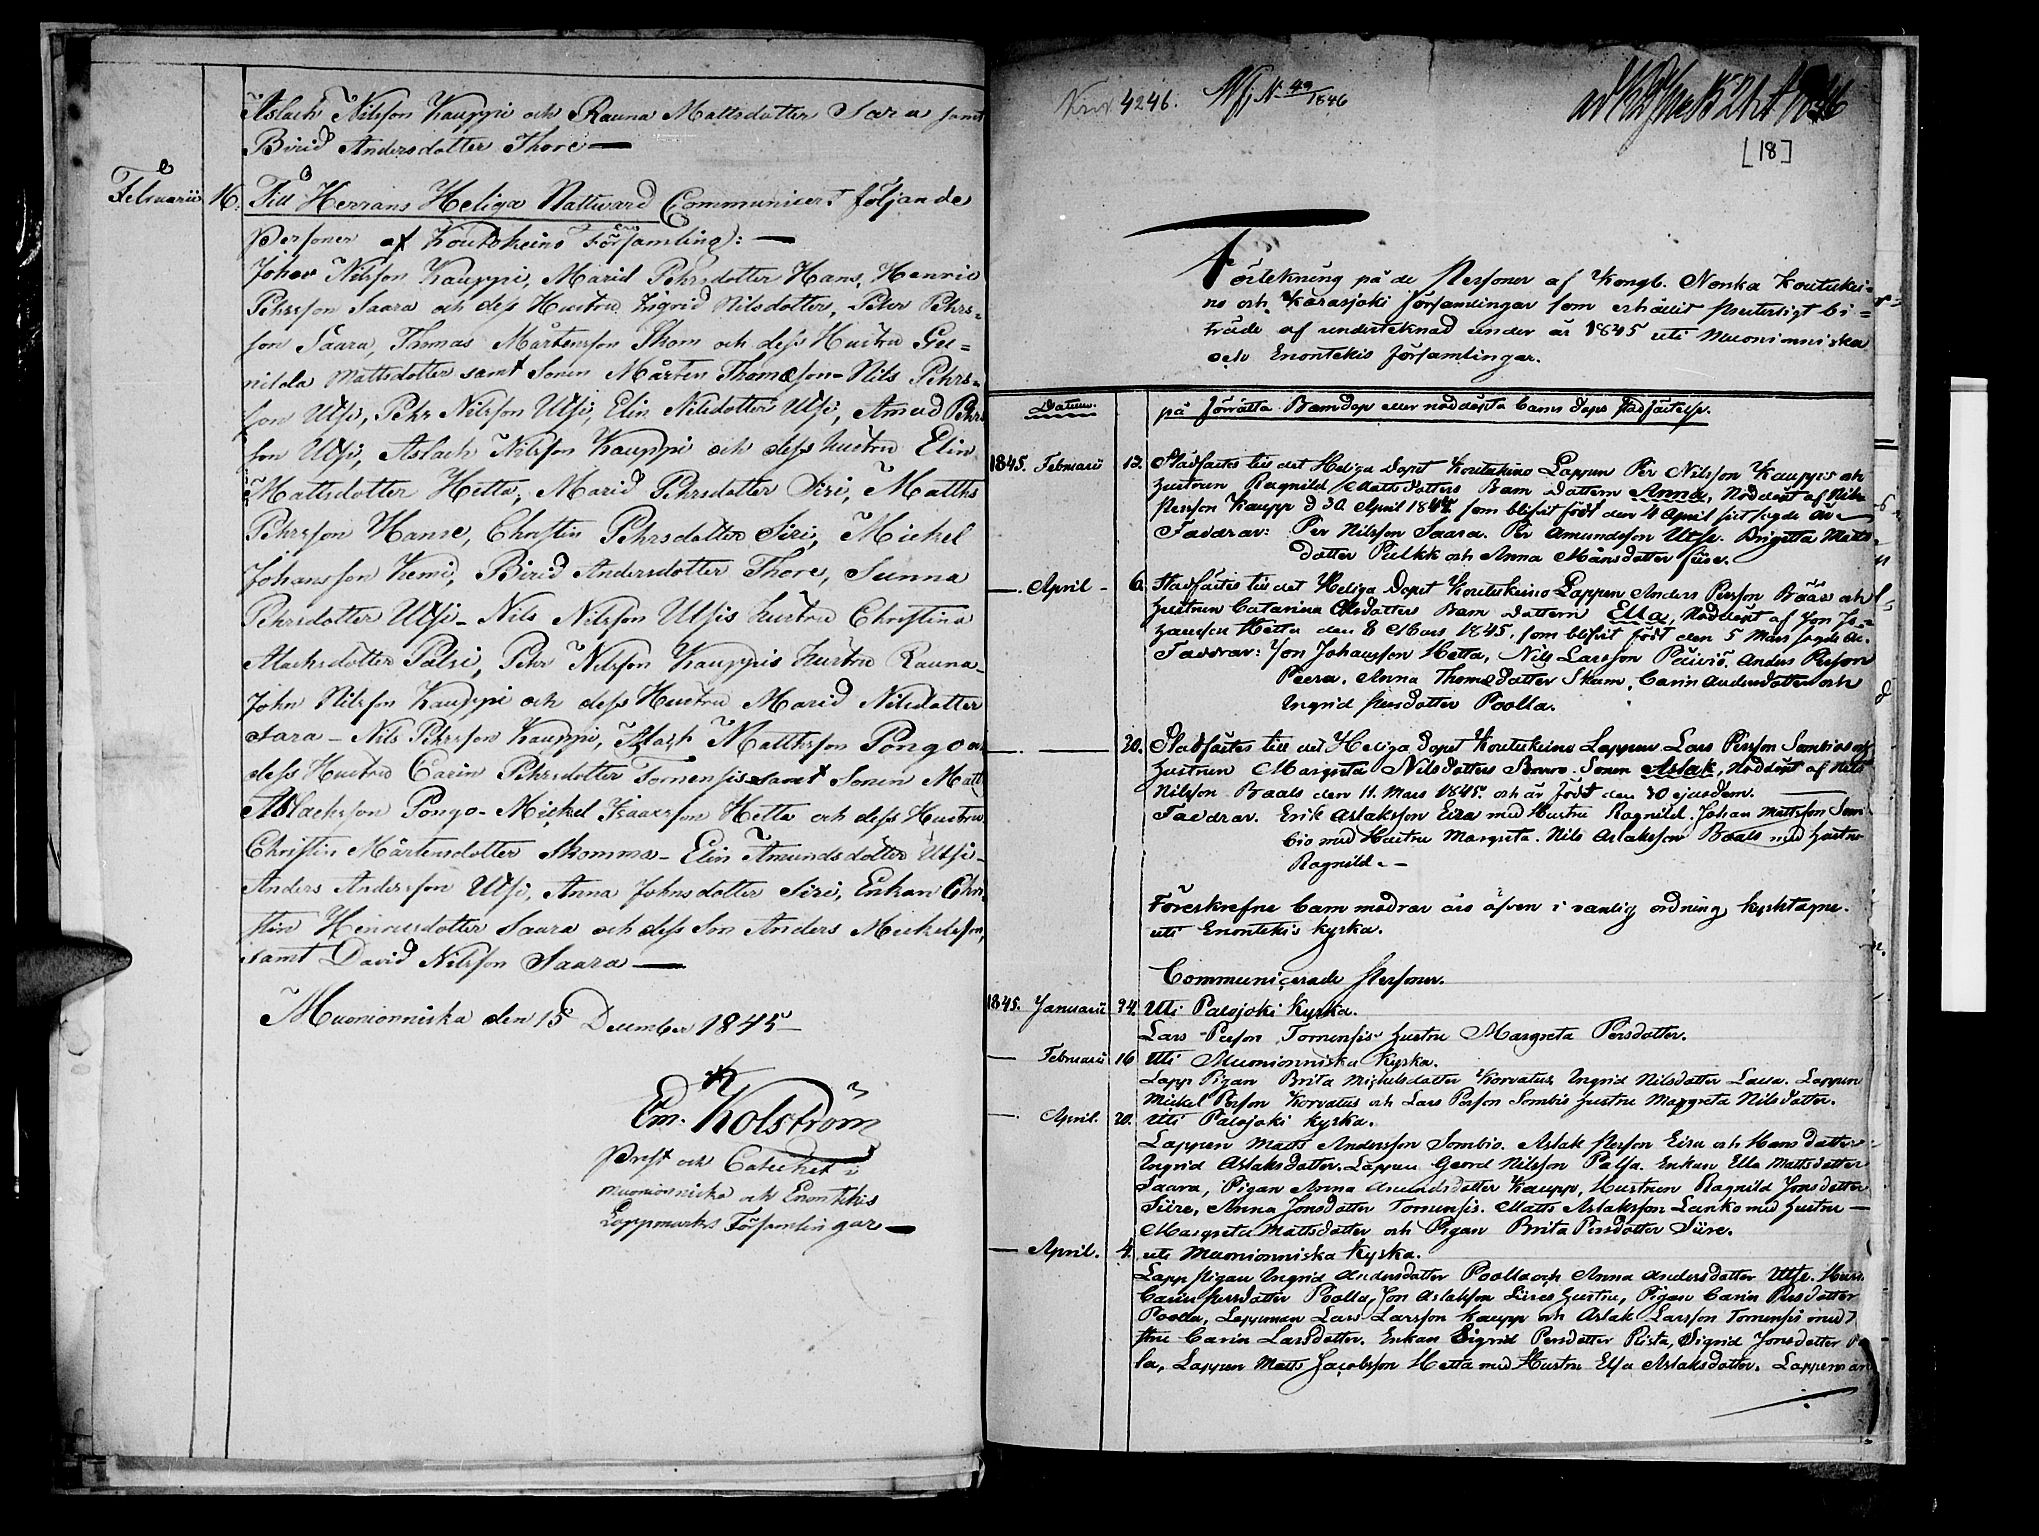 Aslach Nilsson Kauppi och Rauna Mattsdotter Sara samt
Birid Andersdotter Thore —
Februarii 16. Till Herrans Heliga Nattward Communicert följande
Personer af Koutokeino Församling: —
Johan Nilsson Kauppi, Marid Pehrsdotter Hans, Henric
Pehrsson Saara och dess Hustru Zigrid Nilsdotter, Peter Pehrs=
son Saara, Thomas Mårtensson Skom och dess Hustru Gu=
nilda Mattsdotter samt Sonen Mårten Thomæson - Nils Pehrs=
son Utsi, Pehr Nilsson Utsi, Elin Nilsdotter Utsi, Amud Pehrs
son Utsi, Aslach Nilsson Kauppi och dess hustru Elin
Mattsdotter Hetta, Marid Pehrsdotter Siri, Matths
Pehrsson Hanse, Christin Pehrsdotter Siri, Mickel
Johansson Kemi, Birid Andersdotter Thore, Sunna
Pehrsdotter Utsi - Nils Nilsson Utsis hustru Christina
Alacksdotter Palsi, Pehr Nilsson Kauppis hustru Rauna -
John Nilsson Kauppi och dess Hustru Marid Nilsdotter
Sara - Nils Pehrsson Kauppi, Aslach Matthsson Pongo och
dess Hustru Carin Pehrsdotter Tornensis samt Sonen Matts
Aslachsson Pongo - Mickel Isaacsson Hetta och dess Hustru
Christin Mårtensdotter Skomma - Elin Amundsdotter Utsi -
Anders Andersson Utsi, Anna Johnsdotter Siri, Enkan Chri
stin Henricsdotter Saara och dess Son Anders Mickelsson,
samt David Nilsson Saara —
Muonionniska den 15 December 1845 -
Em. Kolström
Prest och Catechet i
Muonionniska och Enontekis
Lappmarks Församlingar —
4246. N 49/1846
[18]
Förtekning på de Personer af Kongl. Norska Koutukei=
no och Karasjoki församlingar som erhållit presterligt bi=
träde af undertecknad under år 1845 uti Muonionniska
och Enontekis församlingar.
Datum. på förrätta Barndop eller nöddöpta barns dops stadfästelse.
1845. Februarii 13. Stadfästes till det Heliga dopet Koutukeino Lappen Per Nilsson Kauppis och
hustrun Ragnild Matts dotters Barn dottern Anna, Nöddöpt af Nils
Persson Kaupp d 30 April 1844, som blifvit född den 4 April sistsagde år —
Faddrar: Per Nilsson Saara. Per Amundsson Utse. Brigetta Matts
dotter Pulkk och Anna Månsdotter Siire.
—. April - 6. Stadfästes till det Heliga Dopet Koutukeino Lappen Anders Persson Bäär och
hustrun Catarina Olsdotters Barn dottern Ella, Nöddöpt af Jon Jo=
hansson Hetta den 8 Mars 1845, som blifvit född den 5 Mars sagde år.
Faddrar: Jon Johansson Hetta, Nils Larsson Päiviö, Anders Persson
Peera, Anna Thomædotter Skum, Carin Andersdotter och
Ingrid Persdotter Poolla.
—. — 20. Stadfästes till det Heliga dopet Koutukeino Lappen Lars Persson Sombios och
hustrun Margreta Nilsdotters Barn Sonen Aslak, Nöddöpt af Nils
Nilsson Baals den 11. Mars 1845. och är född den 10 ejusdem.
Faddrar. Erik Aslaksson Eira med Hustru Ragnild. Johan Mattsson Som
bio med Hustru Margreta. Nils Aslaksson Baals med hustru
Ragnild. -
Föreskrefne barnmödrar äro äfven i vanlig ordning kyrktagne.
uti Enontekis kyrka.
Communicerade Personer.
1845. Januarii 24. Uti Palojoki Kyrka.
Lars Persson Tornensis hustru Margreta Persdotter.
— Februarii 16 Uti Muonionniska Kyrka.
Lapp Pigan Brita Mickelsdotter Korvatus, Ingrid Nilsdotter Lassa. Lappen
Mickel Persson Korvatus och Lars Persson Sombio hustru Margreta Nilsdotter.
—. April. 20. Uti Palojoki kyrka.
Lappen Matts Andersson Sombio. Aslak Persson Eira och Hans dotter
Ingrid Aslaksdotter. Lappen Geord Nilsson Palsa. Enkan Ella Mattsdotter
Saara, Pigan Anna Amundsdotter Kaupp, Hustrun Ragnild Jonsdotter
Siire, Anna Jonsdotter Tornensis. Matts Aslaksson Lanko med hustru —
Margreta Mattsdotter och Pigan Brita Persdotter Siire.
— April. 4. uti Muonionniska Kyrka.
Lapp Pigan Ingrid Andersdotter Poolla och Anna Andersdotter Utse. Hust
Carin Persdotter Poolla, Jon Aslaksson Siires hustru, Pigan Carin Persdotter
Poolla, Lappman Lars Larsson Kaupp och Aslak Larsson Tornensis med
stru Carin Larsdotter. Enkan Sigrid Persdotter Pista, Sigrid Jonsdotter
la, Lappen Matts Jacobsson Hetta med Hustru Elsa Aslaksdotter. Lappman